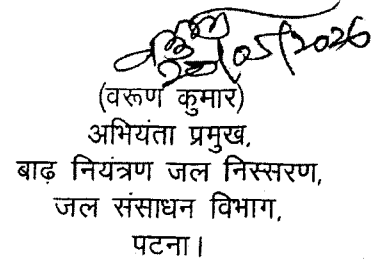 05/2026
(वरूण कुमार)
अभियंता प्रमुख,
बाढ़ नियंत्रण जल निस्सरण,
जल संसाधन विभाग,
पटना।